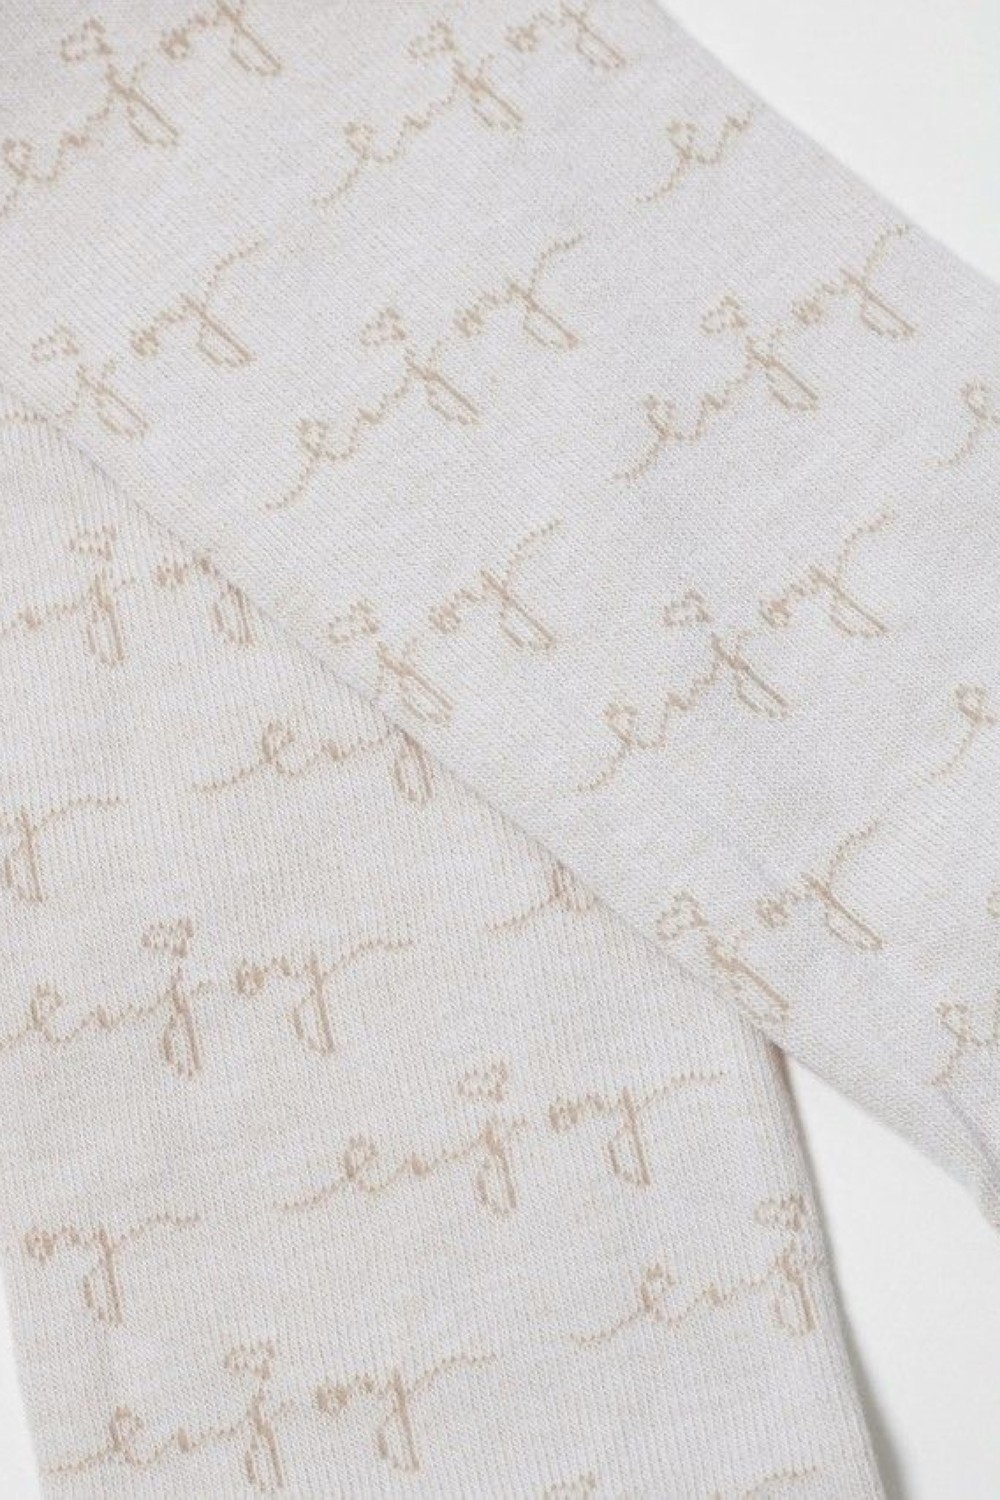 enjoy enjoy en
enjoy enjoy enjoy
enjoy enjoy
enjoy enjoy
enjoy
enjoy
enjoy
enjoy
enjoy